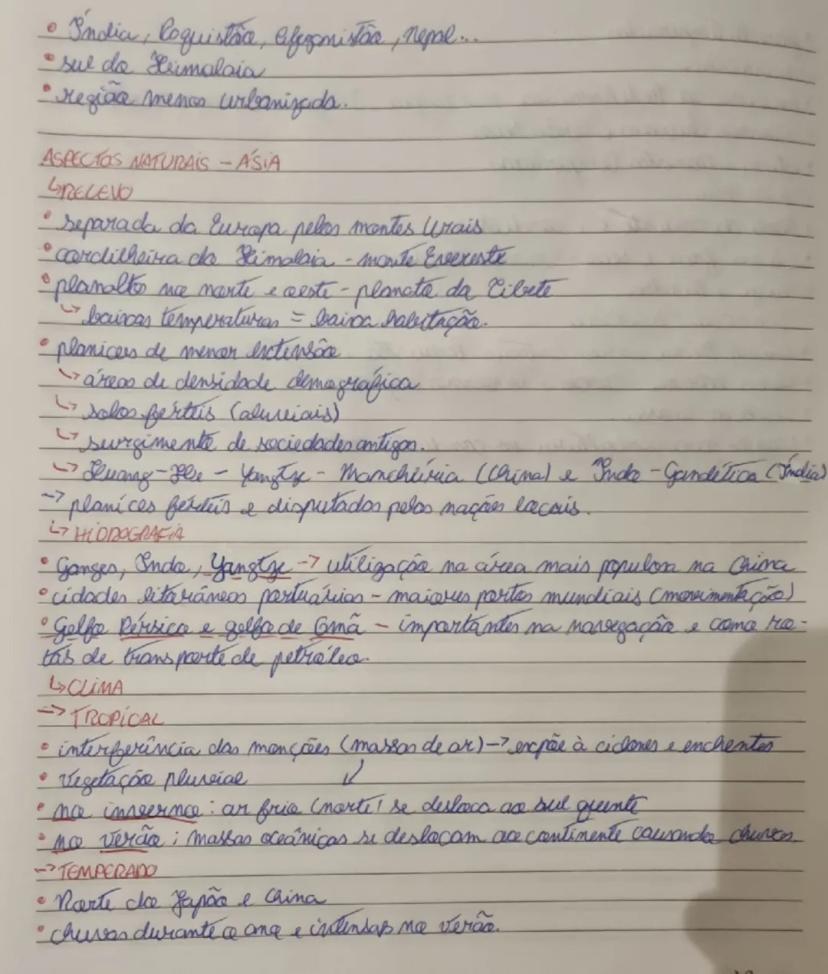 • Índia, Paquistão, Afeganistão, Nepal...
• sul do Himalaia
• região menos urbanizada.
ASPECTOS NATURAIS - ÁSIA
↳ RELEVO
• separada da Europa pelos montes Urais
• cordilheira do Himalaia - monte Evereste
• planalto no norte e oeste - planato da Tibete
↳ baixas temperaturas = baixa habitação.
• planices de menor extensão
↳ áreas de densidade demográfica
↳ solos férteis (aluviais)
↳ surgimento de sociedades antigas.
↳ Huang-He - Yangtze - Manchúria (China) e Indo-Gandética (Índia)
→ planices férteis e disputados pelas nações locais.
↳ HIDROGRAFIA
• Ganges, Indo, Yangtze → utilização na área mais populosa na China
• cidades litorâneas portuárias - maiores portos mundiais (movimentação)
• Golfo Pérsico e golfo de Omã - importantes na navegação e como ro-
tas de transporte de petróleo.
↳ CLIMA
→ TROPICAL
• interferência das monções (massas de ar) → expõe à ciclones e enchentes
• vegetação pluvial ↙
• no inverno: ar frio (norte) se desloca ao sul quente
• no verão: massas oceânicas se deslocam ao continente causando chuvas
→ TEMPERADO
• Norte do Japão e China
• chuvas durante o ano e intensas no verão.